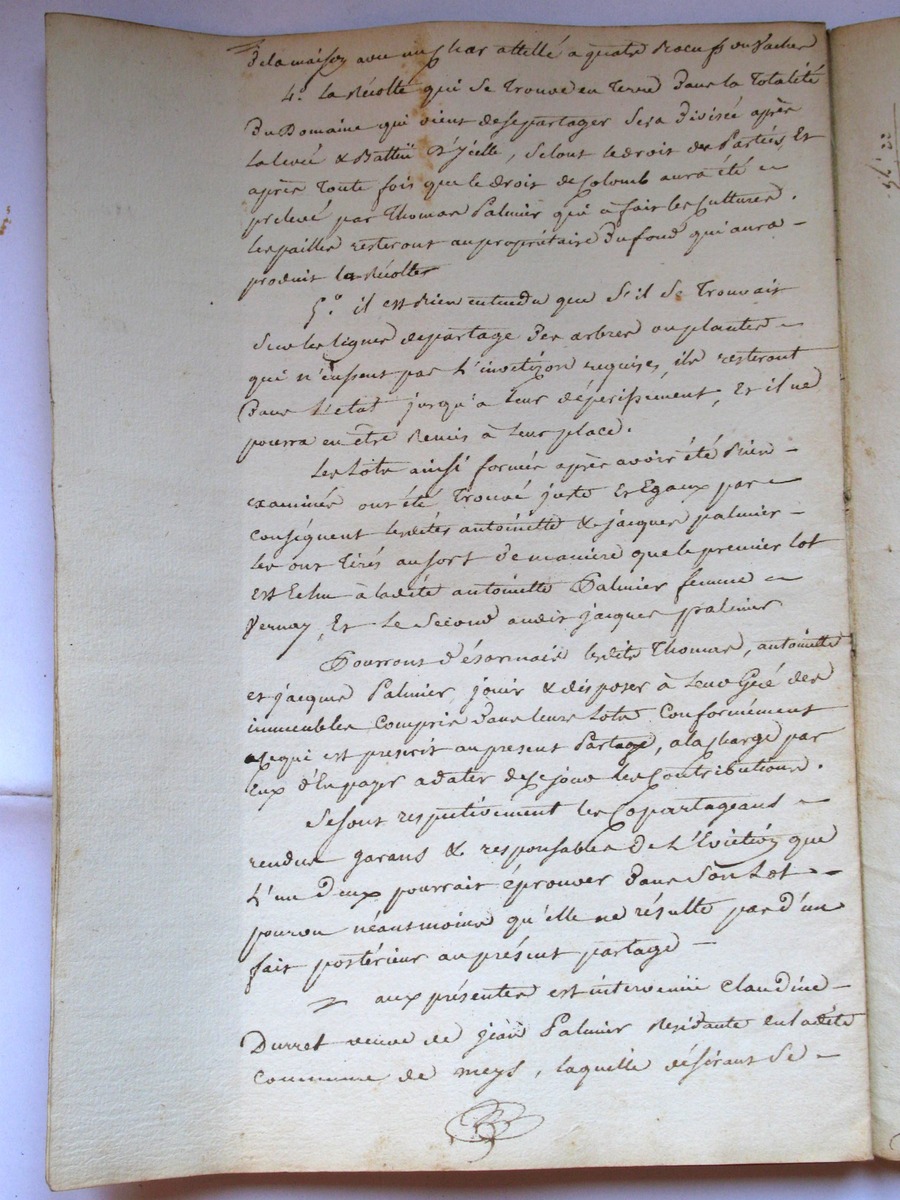 de la maison avec un char attellé a quatre Boeufs ou vaches
4.° La Récolte qui se trouve en terre dans la totalité
du Domaine qui vient de se partager sera divisée après
la levée & Battue d'ycelle, selont le droit des Parties, Et
après toute fois que le droit de Colomb aura été
prelevé par Thomas Palmier qui a fait les Cultures.
les pailles resteront au propriétaire du fond qui aura
produit la Récolte
5.° il est Bien entendu que s'il se trouvait
sur les lignes de partage des arbres ou plantes
qui n'eussent pas l'invetison requises, ils resteront
dans l'etat jusqu'a leur dépérissement, Et il ne
pourra en être Remis à leur place.
Les Lots ainsi formés après avoir été Bien
examinés ont été trouvé juste Et Egaux par
conséquent lesdits antoinette & jacques palmier
les ont tirés au sort de maniere que le premier lot
est Echu à ladite antoinette Palmier femme
Vernay, Et le Second audit jacques palmier
Pourront d'ésormais lesdits Thomas, antoinette
et jacques Palmier, jouir & disposer à leur Gré des
immeubles compris dans leurs Lots conformément
a Ce qui est prescrit au present Partage, a la charge par
Eux d'En payer a dater de Ce jour les Contributions.
Se sont respectivement les Copartageans
rendus garans & responsables de L'Eviction que
L'un d'eux pourrait éprouver dans son Lot
pourvu néantmoins qu'elle ne résulte pas d'un
fait postérieur au présent partage
aux présentes est intervenue Claudine
Durret veuve de jean Palmier Residante en ladite
Commune de meys, laquelle désirant se